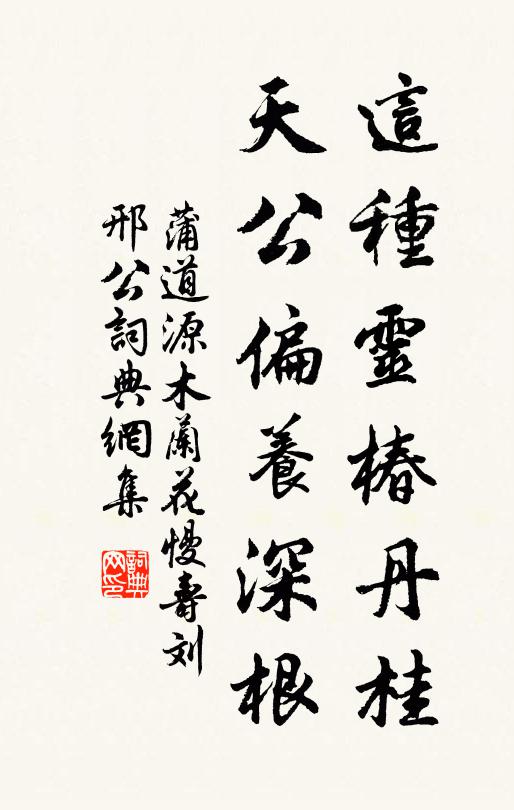 這種靈椿丹桂
天公偏養深根
蒲道源木蘭花慢壽刘
邢公詞典網集
詞典
网印